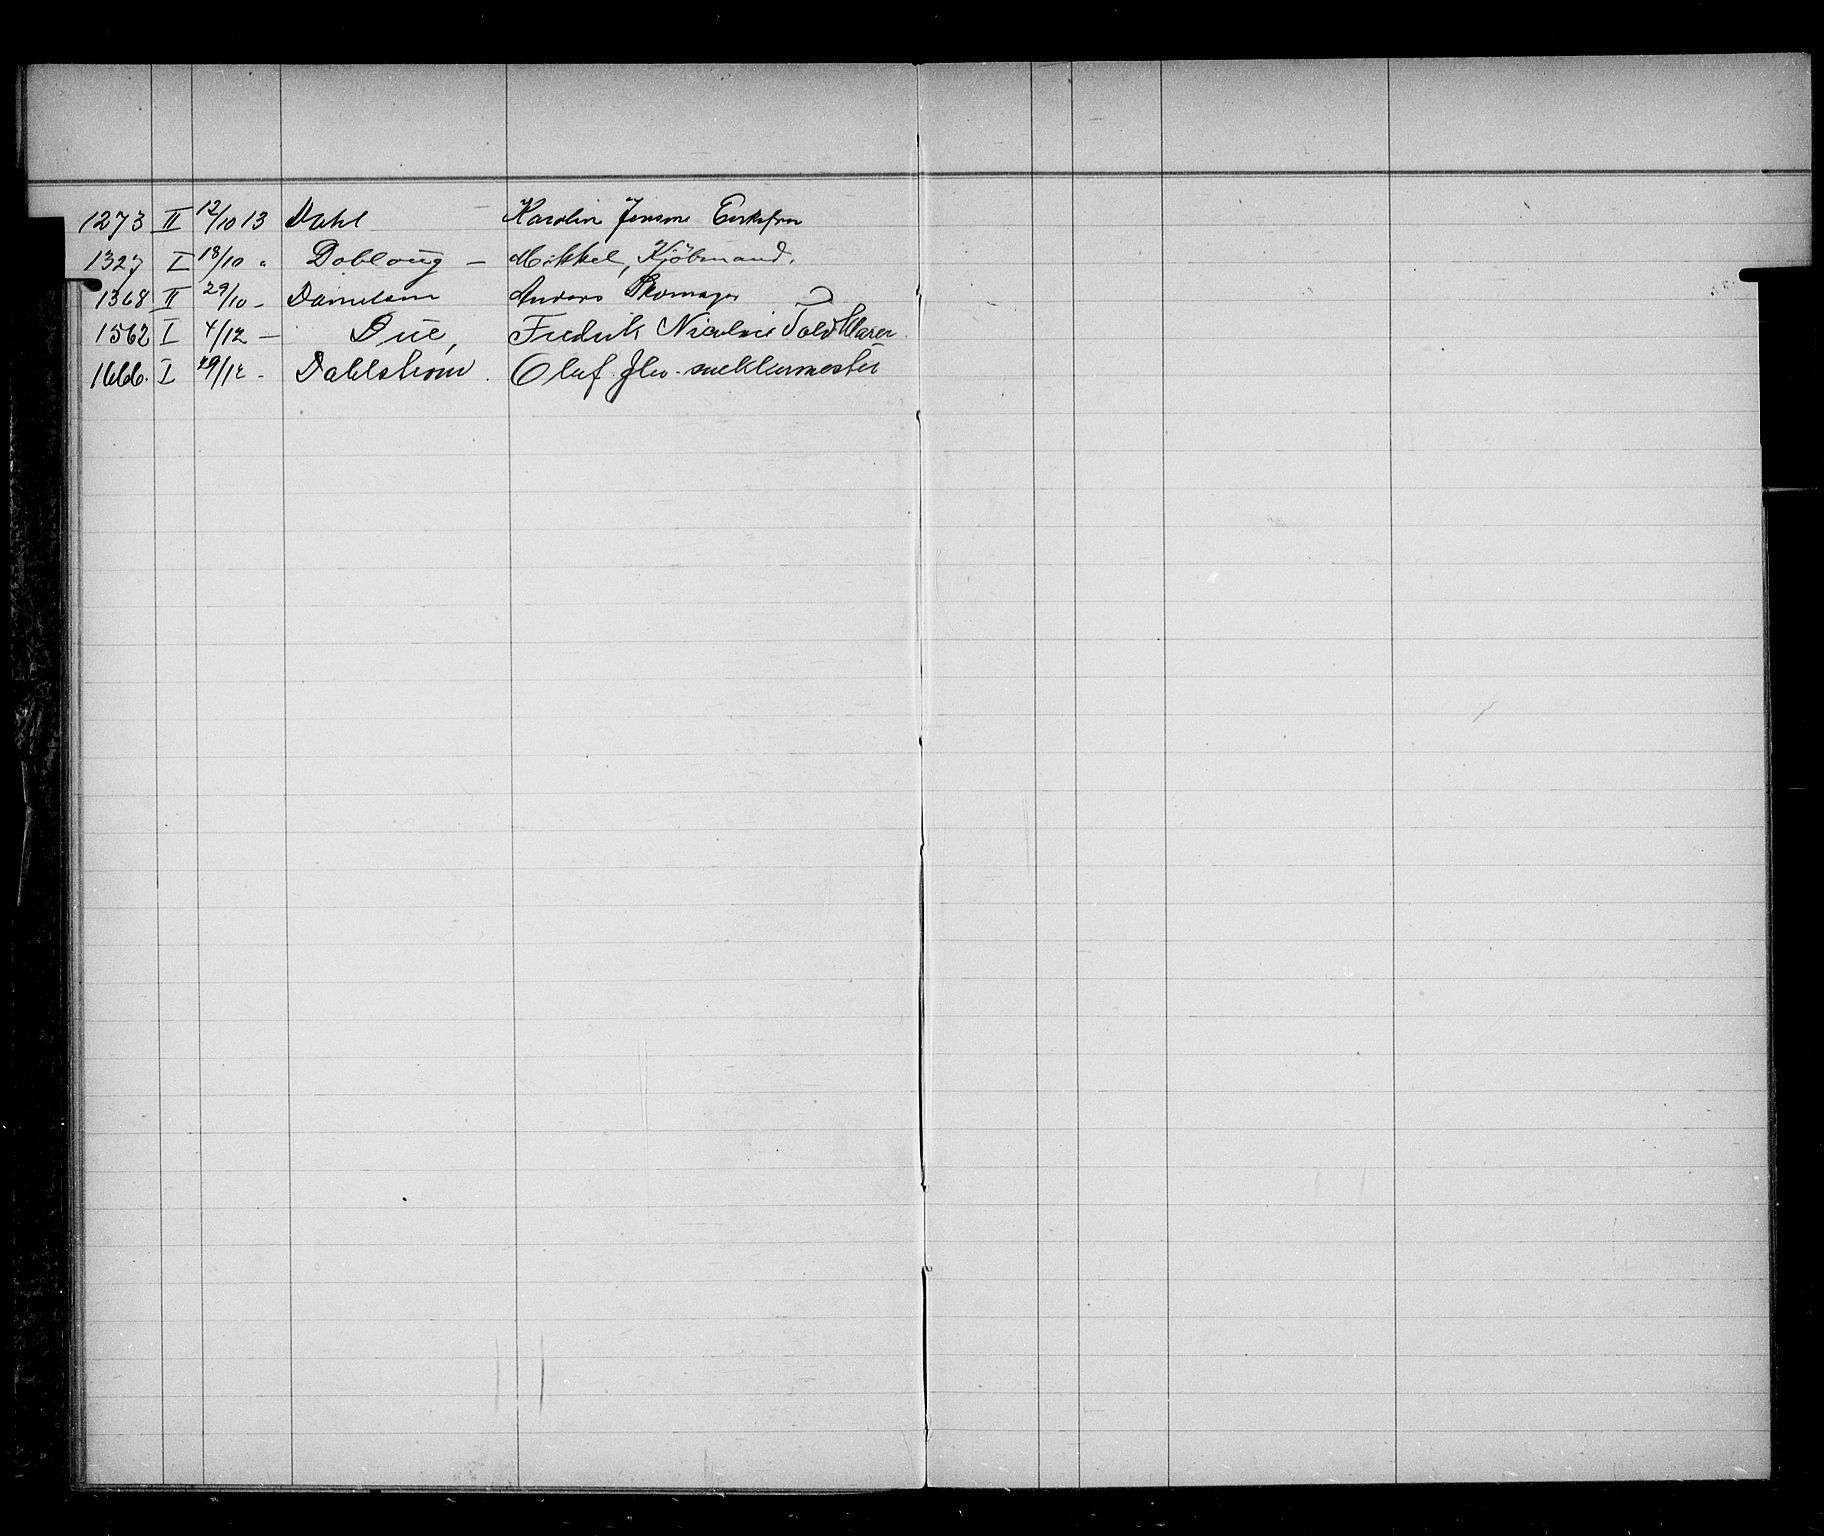 1273 II 12/10 13 Dahl Karolin Jensine Enkefru
1327 I 18/10 " Dobloug – Mikkel, Kjöbmand.
1368 II 29/10 - Danielsen Anders Skomager
1562 I 4/12 — Due, Fredrik Nicolai Toldkasserer
1666. I 29/12 - Dahlstrøm. Oluf